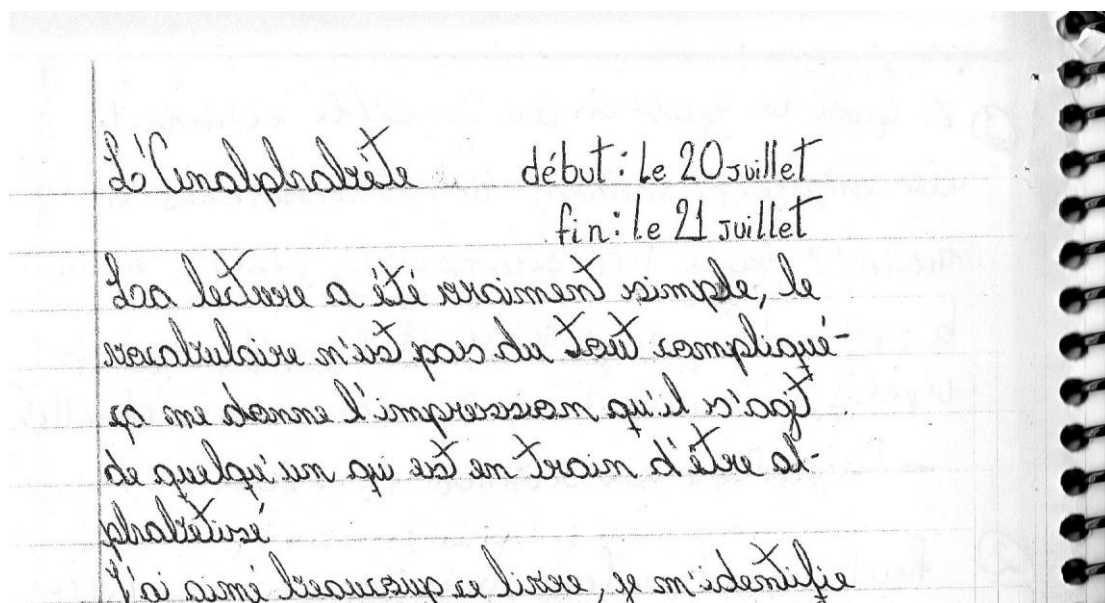 L'Analphabète début: Le 20 Juillet
fin: Le 21 Juillet
La lecture a été vraiment simple, le
vocabulaire n'est pas du tout compliqué-
ça me donne l'impression qu'il s'agit
de quelqu'un qui est en train d'être al-
phabétisé
J'ai aimé beaucoup ce livre, je m'identifie